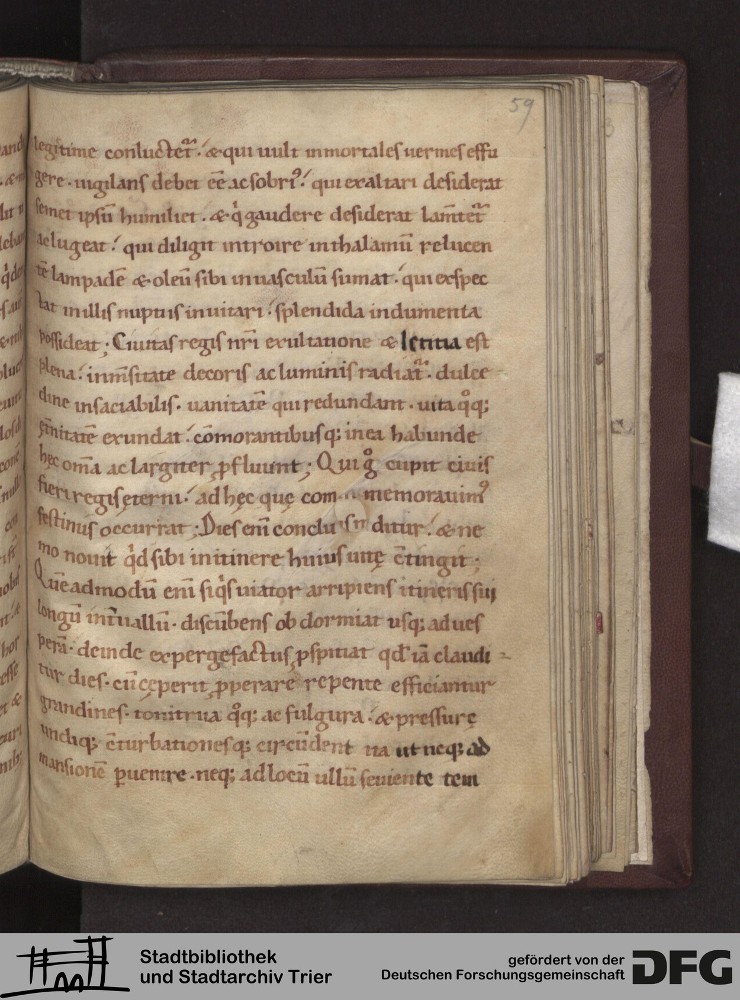 59
legitime conluctet᷑. & qui uult inmortales uermes effu
gere. uigilans debet eē ac sobri᷒. qui exaltari desiderat
semet ipsū humiliet. & q̇ gaudere desiderat lam̄tet᷑
ac lugeat. qui diligit introire in thalamū relucen
tē lampadē & oleū sibi in uasculū sumat. qui exspec
tat in illis nuptiis inuitari. splendida indumenta
possideat; Ciuitas regis nr̄i exultatione & lętitia est
plena. inm̄sitate decoris ac luminis radiat᷑. dulce
dine insaciabilis. uanitatē qui redundant. uita q̊q;
ęt̄nitatē exundat. cōmorantibusq; in ea habunde
hęc om̄a ac largiter ꝓfluunt; Qui g̊ cupit ciuis
fieri regis ęterni. ad hęc quę com memorauim᷒
festinus occurrat; Dies enī conclu ditur. & ne
mo nouit qd̄ sibi in itinere huius uitę c̄tingit;
Quēadmodū enī siq̇s uiator arripiens itineris sui
longū int̄uallū. discūbens ob dormiat usq; ad ues
perā. deinde expergefactus ꝓspitiat qd̄ iā claudi
tur dies. cū ceperit ꝓperare repente efficiantur
grandines. tonitrua q̊q; ac fulgura. & pressurę
undiq; c̄turbationesq; circūdent ita ut neq; ad
mansionē ꝑuenire. neq; ad locū ullū seuiente tem
Stadtbibliothek
und Stadtarchiv Trier
gefördert von der
Deutschen Forschungsgemeinschaft
DFG